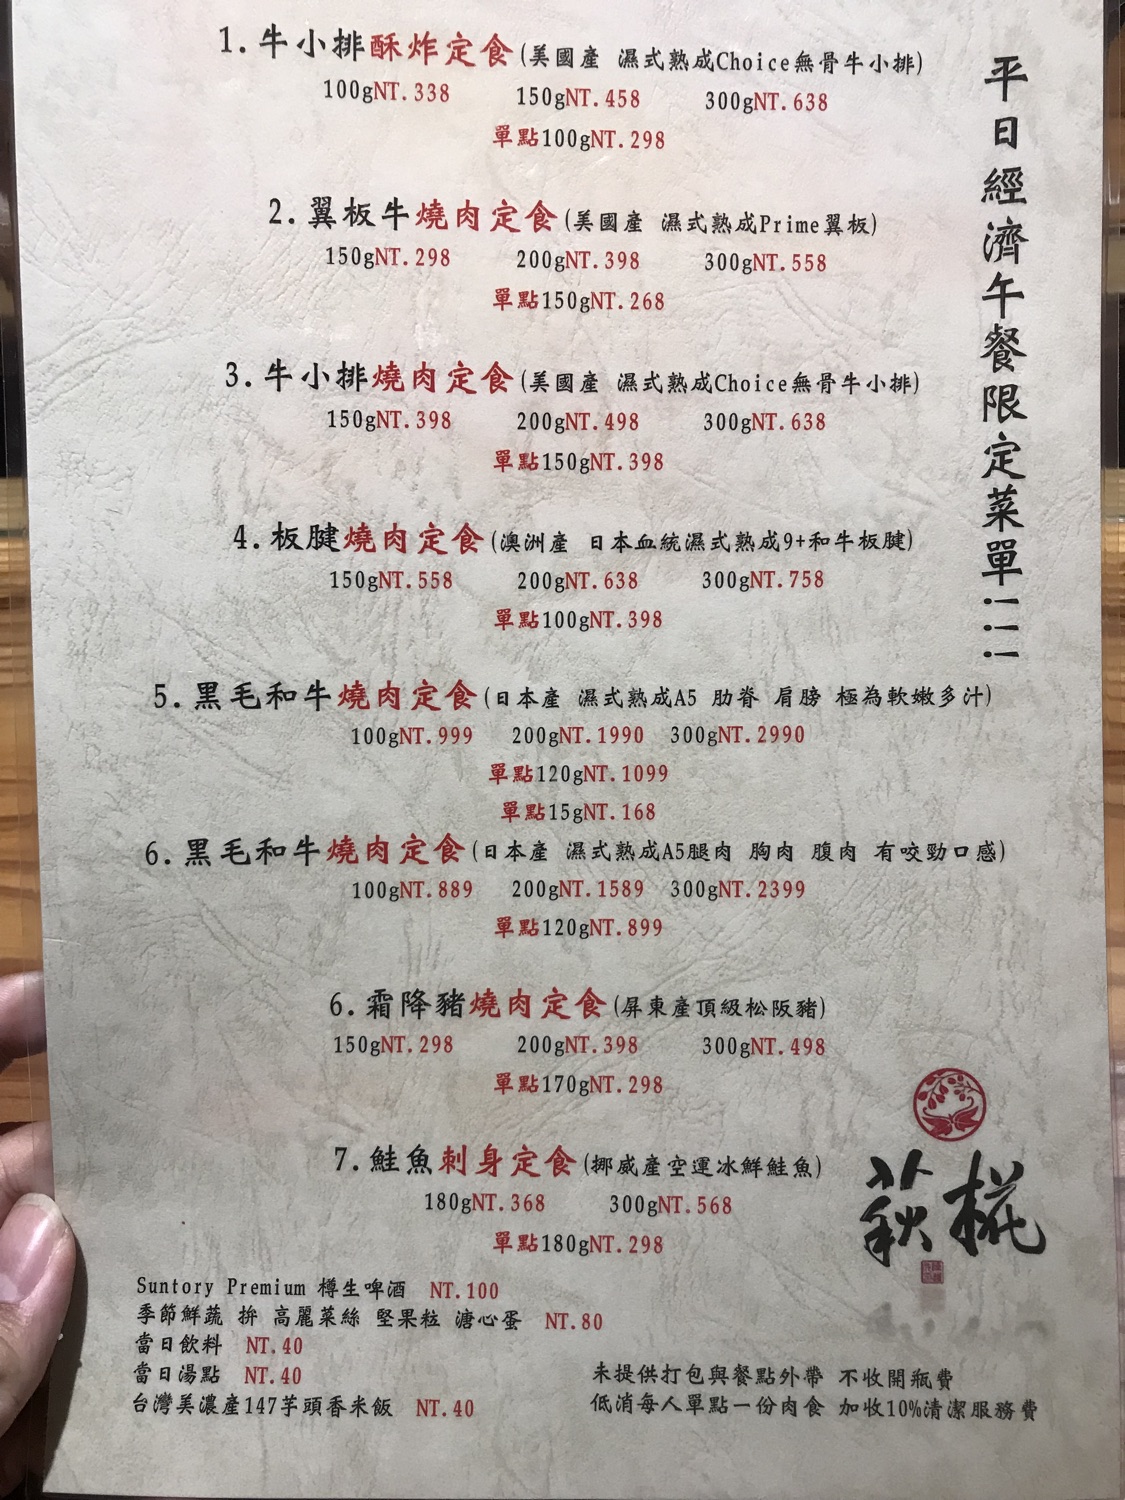 平日經濟午餐限定菜單!!!
1.牛小排酥炸定食(美國產 濕式熟成Choice無骨牛小排)
100gNT.338 150gNT.458 300gNT.638
單點100gNT.298
2.翼板牛燒肉定食(美國產 濕式熟成Prime翼板)
150gNT.298 200gNT.398 300gNT.558
單點150gNT.268
3.牛小排燒肉定食(美國產 濕式熟成Choice無骨牛小排)
150gNT.398 200gNT.498 300gNT.638
單點150gNT.398
4.板腱燒肉定食(澳洲產 日本血統濕式熟成9+和牛板腱)
150gNT.558 200gNT.638 300gNT.758
單點100gNT.398
5.黑毛和牛燒肉定食(日本產 濕式熟成A5 肋脊 肩膀 極為軟嫩多汁)
100gNT.999 200gNT.1990 300gNT.2990
單點120gNT.1099
單點15gNT.168
6.黑毛和牛燒肉定食(日本產 濕式熟成A5腿肉 胸肉 腹肉 有咬勁口感)
100gNT.889 200gNT.1589 300gNT.2399
單點120gNT.899
6.霜降豬燒肉定食(屏東產頂級松阪豬)
150gNT.298 200gNT.398 300gNT.498
單點170gNT.298
7.鮭魚刺身定食(挪威產空運冰鮮鮭魚)
180gNT.368 300gNT.568
單點180gNT.298
萩椛
Suntory Premium 樽生啤酒 NT.100
季節鮮蔬 拚 高麗菜絲 堅果粒 溏心蛋 NT.80
當日飲料 NT.40
當日湯點 NT.40
台灣美濃產147芋頭香米飯 NT.40
未提供打包與餐點外帶 不收開瓶費
低消每人單點一份肉食 加收10%清潔服務費